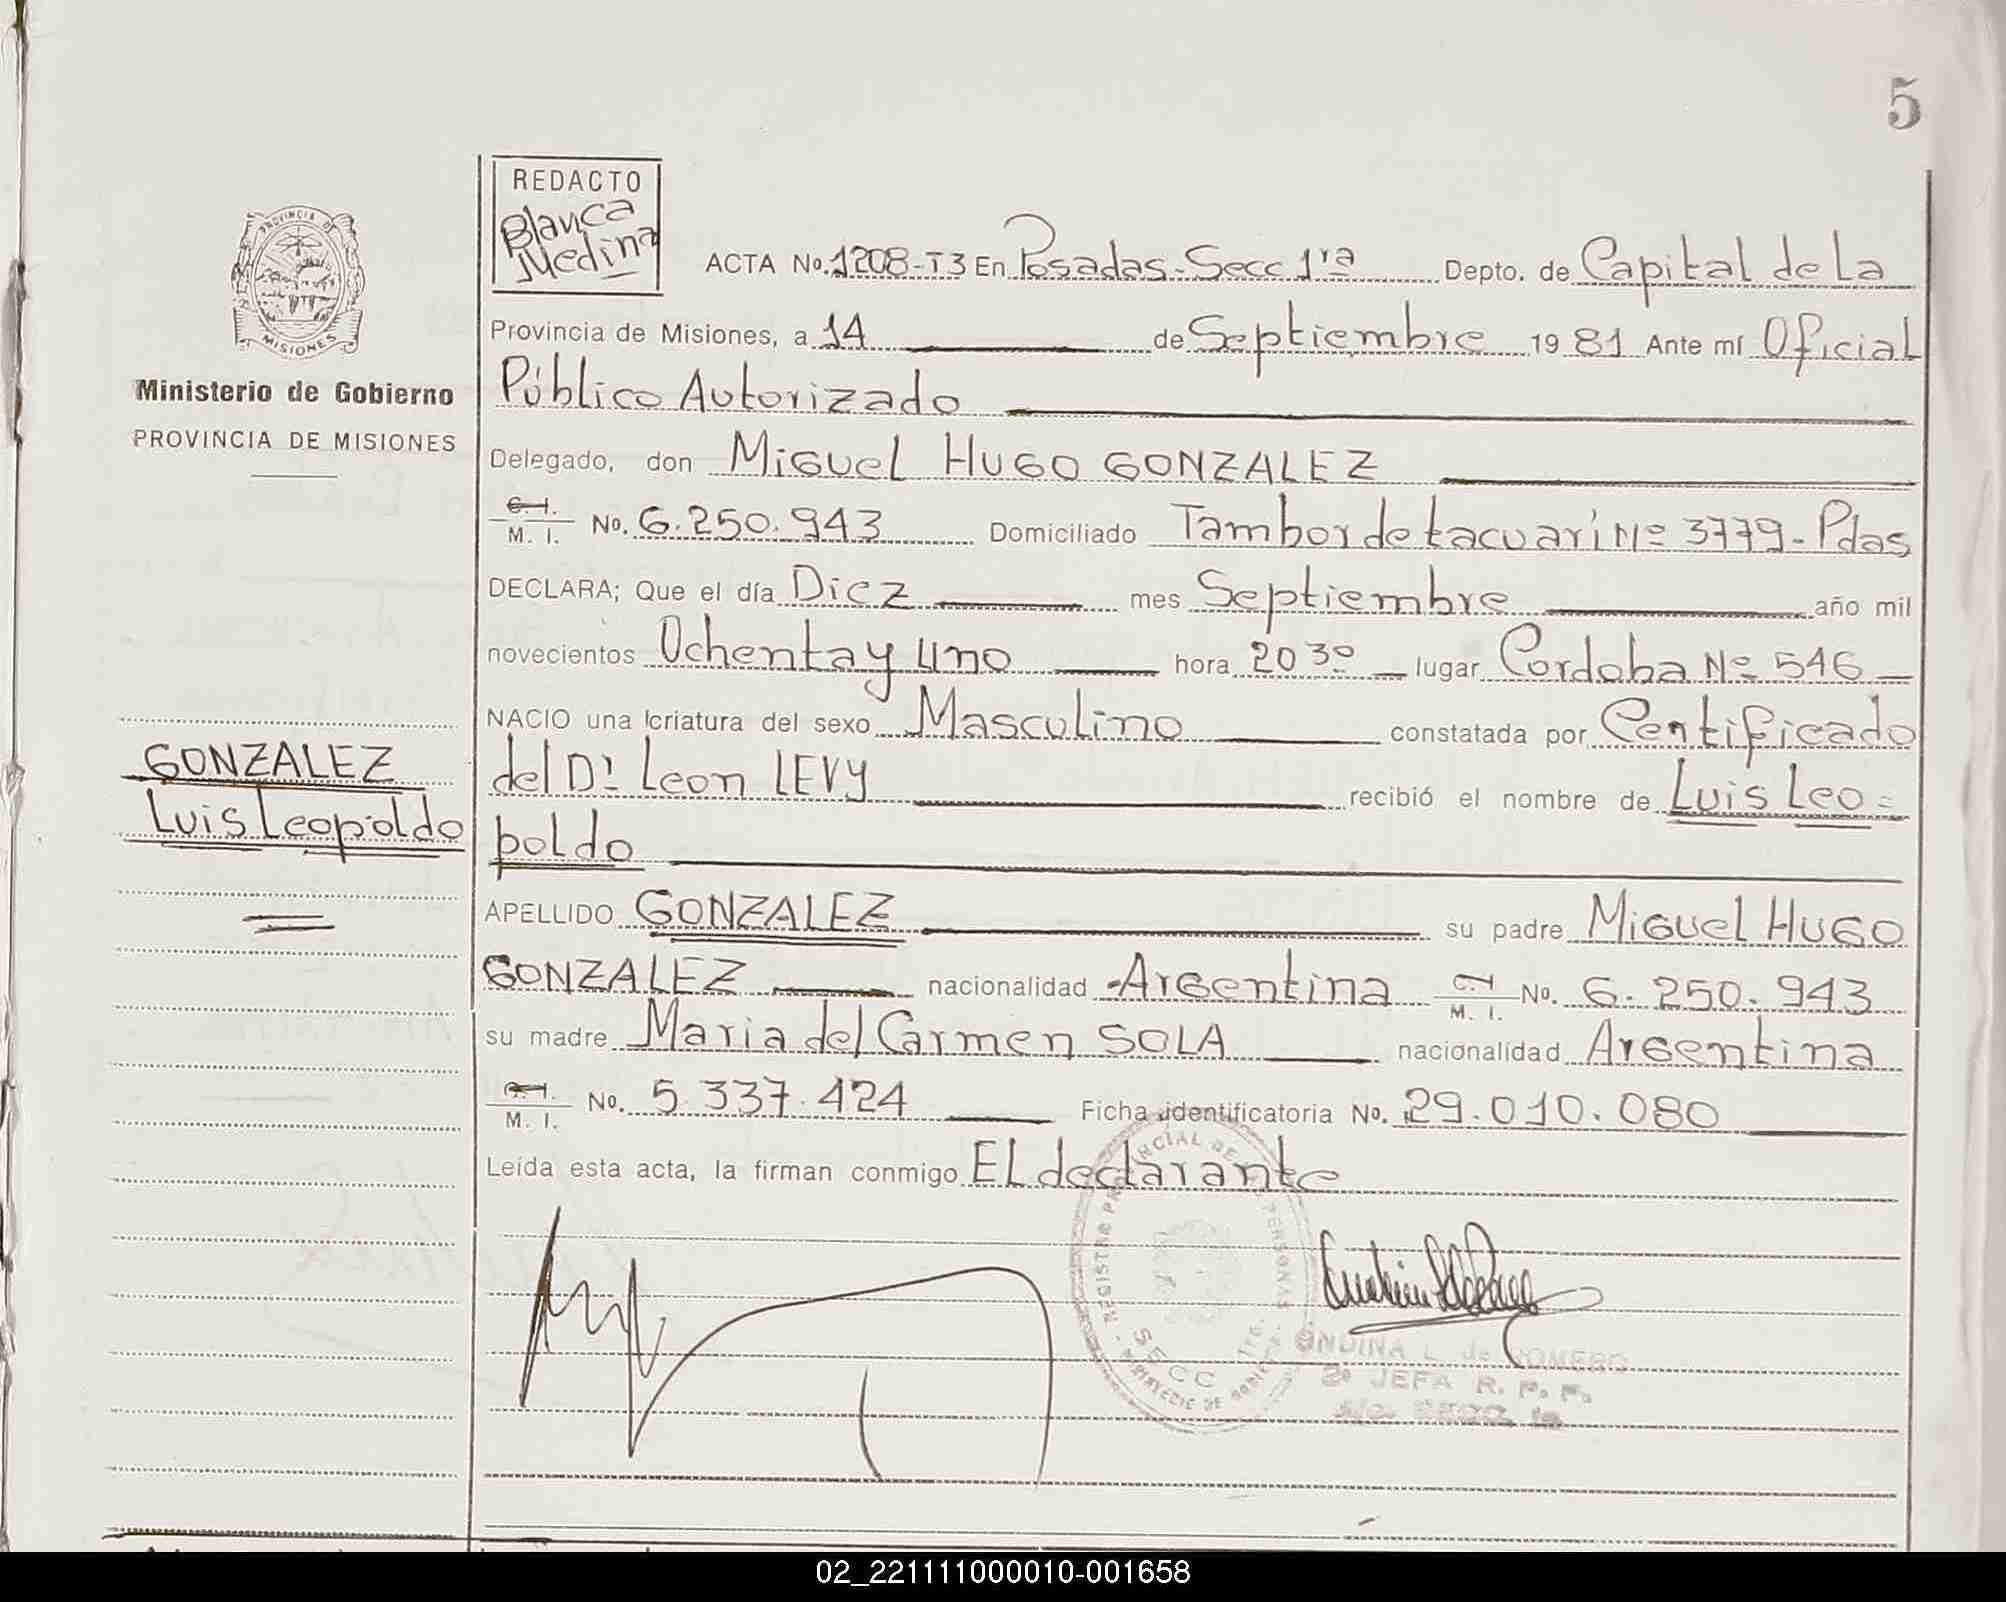 5
PROVINCIA DE
MISIONES
Ministerio de Gobierno
PROVINCIA DE MISIONES
GONZALEZ
Luis Leopoldo
REDACTO
Blanca
Medina
ACTA No. 1208-T3 En Posadas-Secc 1ra Depto. de Capital de La
Provincia de Misiones, a 14 de Septiembre 1981 Ante mí Oficial
Público Autorizado
Delegado, don Miguel Hugo GONZALEZ
C. I. M. I. No. 6.250.943 Domiciliado Tambor de tacuari No 3779-Pdas
DECLARA; Que el día Diez mes Septiembre año mil
novecientos Ochenta y uno hora 20 30 lugar Cordoba No 546
NACIO una criatura del sexo Masculino constatada por Centificado
del Dr Leon LEVY recibió el nombre de Luis Leo=
poldo
APELLIDO GONZALEZ su padre Miguel Hugo
GONZALEZ nacionalidad Argentina C. I. M. I. No. 6.250.943
su madre Maria del Carmen SOLA nacionalidad Argentina
C. I. M. I. No. 5.337.424 Ficha identificatoria No. 29.010.080
Leída esta acta, la firman conmigo El declarante
SECC
ONDINA L. de ROMERO
2º JEFA R. P. P.
02_221111000010-001658